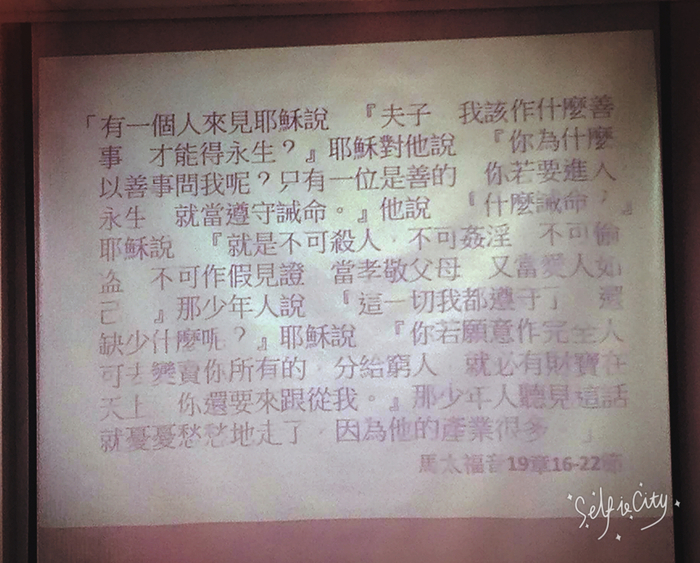 「有一個人來見耶穌說 『夫子 我該作什麼善
事 才能得永生？』耶穌對他說 『你為什麼
以善事問我呢？只有一位是善的 你若要進入
永生 就當遵守誡命。』他說 『什麼誡命？』
耶穌說 『就是不可殺人，不可姦淫 不可偷
盜 不可作假見證 當孝敬父母 又當愛人如
己 』那少年人說 『這一切我都遵守了 還
缺少什麼呢？』耶穌說 『你若願意作完全人
可去變賣你所有的，分給窮人 就必有財寶在
天上 你還要來跟從我。』那少年人聽見這話
就憂憂愁愁地走了，因為他的產業很多 」
馬太福音19章16-22節
SelfieCity